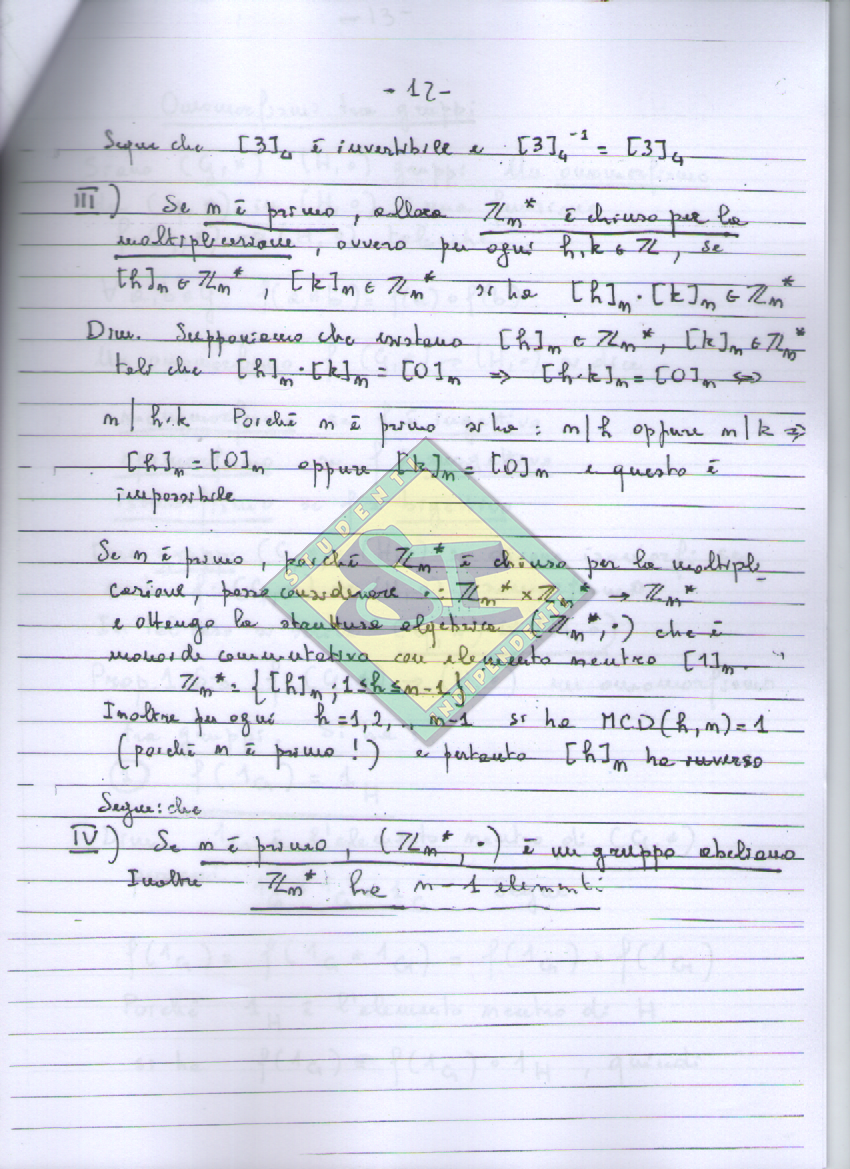 - 12 -
Segue che [3]₄ è invertibile e [3]₄⁻¹ = [3]₄
III) Se n è primo, allora ℤₙ* è chiuso per la
moltiplicazione, ovvero per ogni h,k ∈ ℤ, se
[h]ₙ ∈ ℤₙ*, [k]ₙ ∈ ℤₙ* si ha [h]ₙ · [k]ₙ ∈ ℤₙ*
Dim. Supponiamo che esistano [h]ₙ ∈ ℤₙ*, [k]ₙ ∈ ℤₙ*
tali che [h]ₙ · [k]ₙ = [0]ₙ ⇒ [h·k]ₙ = [0]ₙ ⇔
n | h·k Poiché n è primo si ha : n|h oppure n|k ⇒
[h]ₙ = [0]ₙ oppure [k]ₙ = [0]ₙ e questo è
impossibile
Se n è primo, poiché ℤₙ* è chiuso per la moltipli-
cazione, posso considerare · : ℤₙ* × ℤₙ* → ℤₙ*
e ottengo la struttura algebrica (ℤₙ*, ·) che è
monoide commutativo con elemento neutro [1]ₙ.
ℤₙ* = {[h]ₙ ; 1≤h≤n-1}
Inoltre per ogni h=1,2,.., n-1 si ha MCD(h,n)=1
(poiché n è primo !) e pertanto [h]ₙ ha inverso
Segue: che
IV) Se n è primo, (ℤₙ*, ·) è un gruppo abeliano
Inoltre ℤₙ* ha n-1 elementi.
STUDENTI
INDIPENDENTI